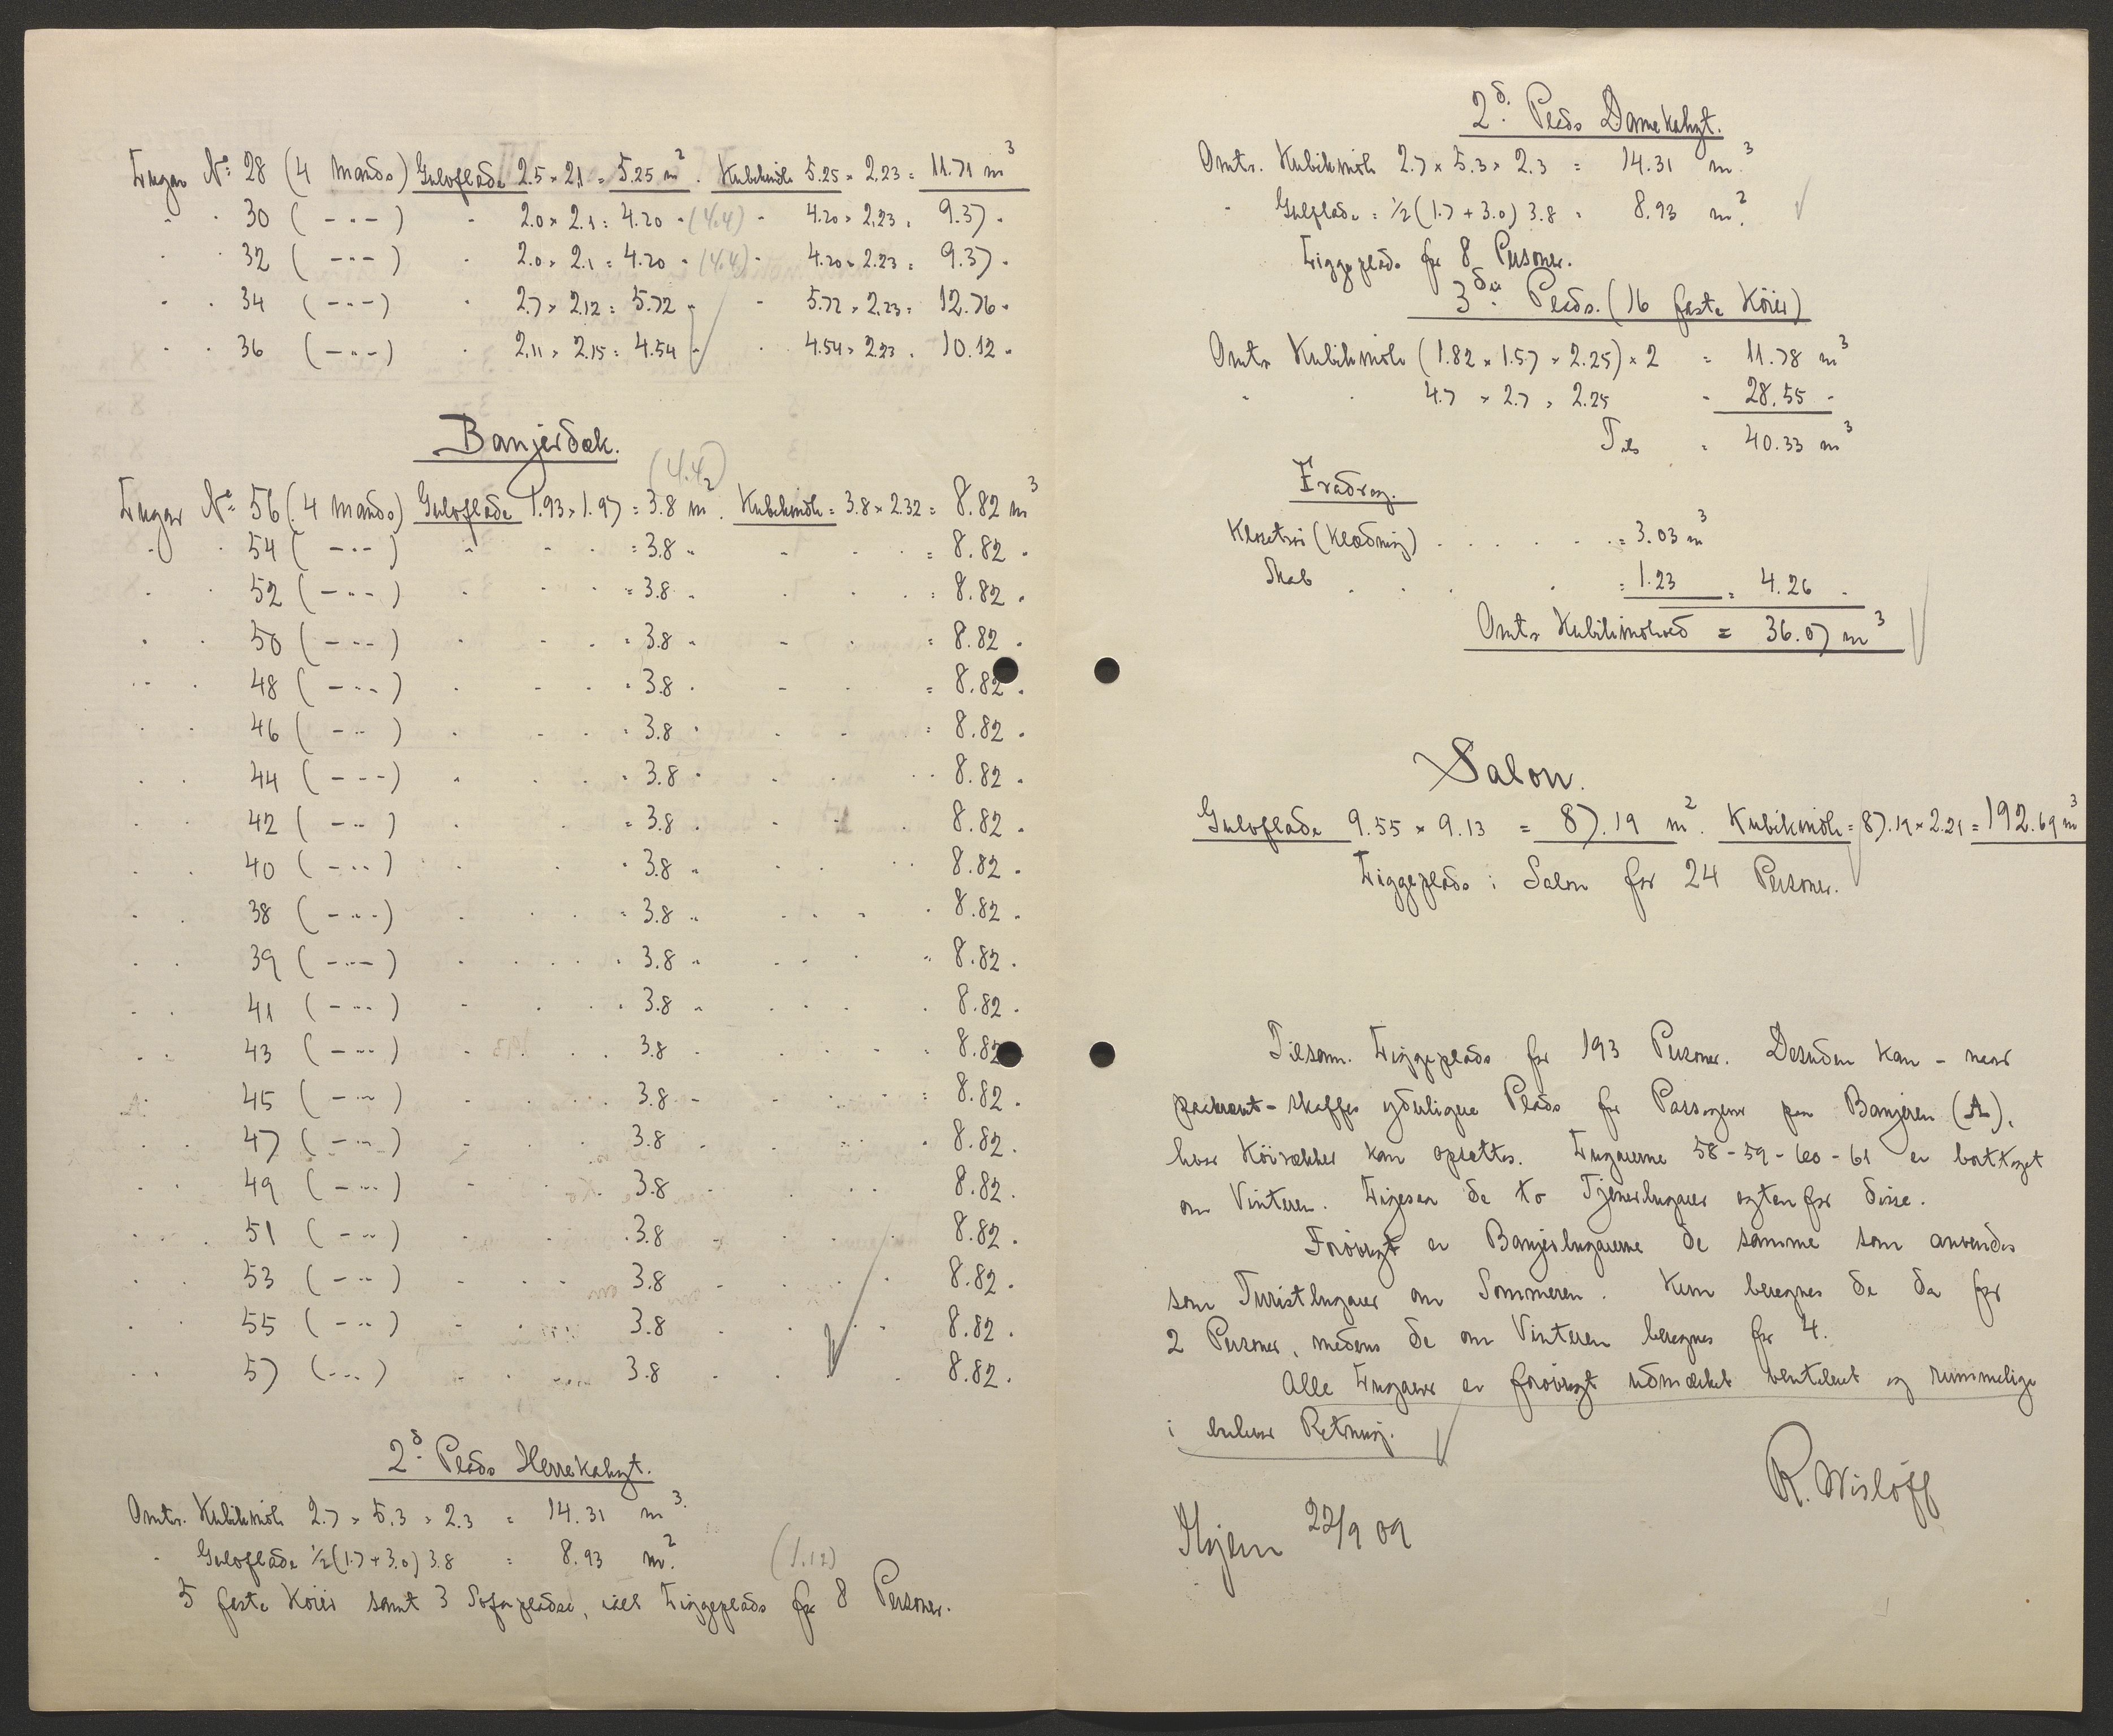 Lugar No 28 (4 Mands) Gulvflade 2.5 × 2.1 = 5.25 m². Kubikindh. 5.25 × 2.23 = 11.71 m³
" " 30 ( - " - ) " 2.0 × 2.1 = 4.20 " (4.4) " 4.20 × 2.23 = 9.37 "
" " 32 ( - " - ) " 2.0 × 2.1 = 4.20 " (4.4) " 4.20 × 2.23 = 9.37 "
" " 34 ( - " - ) " 2.7 × 2.12 = 5.72 " " 5.72 × 2.23 = 12.76 "
" " 36 ( - " - ) " 2.11 × 2.15 = 4.54 " " 4.54 × 2.23 = 10.12 "
Banjerdæk.
(4.4)
Lugar No 56 (4 Mands) Gulvflade 1.93 × 1.97 = 3.8 m². Kubikindh. = 3.8 × 2.32 = 8.82 m³
" " 54 ( - " - ) " " " = 3.8 " " " " = 8.82 "
" " 52 ( - " - ) " " " = 3.8 " " " " = 8.82 "
" " 50 ( - " - ) " " " = 3.8 " " " " = 8.82 "
" " 48 ( - " - ) " " " = 3.8 " " " " = 8.82 "
" " 46 ( - " - ) " " " = 3.8 " " " " = 8.82 "
" " 44 ( - " - ) " " " = 3.8 " " " " 8.82 "
" " 42 ( - " - ) " " " = 3.8 " " " " 8.82 "
" " 40 ( - " - ) " " " 3.8 " " " " 8.82 "
" " 38 ( - " - ) " " " = 3.8 " " " " 8.82 "
" " 39 ( - " - ) " " " 3.8 " " " " 8.82 "
" " 41 ( - " - ) " " " 3.8 " " " " 8.82 "
" " 43 ( - " - ) " " " 3.8 " " " " 8.82 "
" " 45 ( - " - ) " " " 3.8 " " " " = 8.82 "
" " 47 ( - " - ) " " " 3.8 " " " " 8.82 "
" " 49 ( - " - ) " " " 3.8 " " " " 8.82 "
" " 51 ( - " - ) " " " 3.8 " " " " 8.82 "
" " 53 ( - " - ) " " " 3.8 " " " " 8.82 "
" " 55 ( - " - ) " " " 3.8 " " " " 8.82 "
" " 57 ( - " - ) " " " 3.8 " " " " 8.82 "
2d. Plads Herrekahyt.
Omtr. Kubikindh 2.7 × 5.3 × 2.3 = 14.31 m³.
" Gulvflade ½(1.7 + 3.0) 3.8 = 8.93 m². (1.12)
5 faste Köier samt 3 Sofapladse, ialt Liggeplads for 8 Personer.
2d. Plads Damekahyt.
Omtr. Kubikindh 2.7 × 5.3 × 2.3 = 14.31 m³
" Gulflade = ½(1.7 + 3.0) 3.8 = 8.93 m².
Liggeplads for 8 Personer.
3die. Plads. (16 faste Köier)
Omtr Kubikindh (1.82 × 1.57 × 2.25) × 2 = 11.78 m³
" " 4.7 × 2.7 × 2.25 " 28.55 "
Tils = 40.33 m³
Fradrag.
Klosetrör (Klædning) . . . . . = 3.03 m³
Skab . . . . = 1.23 = 4.26 "
Omtr Kubikindhold = 36.07 m³
Salon.
Gulvflade 9.55 × 9.13 = 87.19 m². Kubikindh. = 87.19 × 2.21 = 192.69 m³
Liggeplads i Salon for 24 Personer.
Tilsam. Liggeplads for 193 Personer. Desuden kan - naar
paakrævet - skaffes yderligere Plads for Passagerer paa Banjeren (A),
hvor Köirækker kan opsættes. Lugarerne 58 - 59 - 60 - 61 er borttaget
om Vinteren. Ligesaa de to Tjenerlugarer agtenfor disse.
Forövrigt er Banjerlugarerne de samme som anvendes
som Turistlugarer om Sommeren. Kun beregnes de da for
2 Personer, medens de om Vinteren beregnes for 4.
Alle Lugarer er forövrigt udmærket ventileret og rummelige
i enhver Retning.
R. Wislöff
Hjem 22/9 09